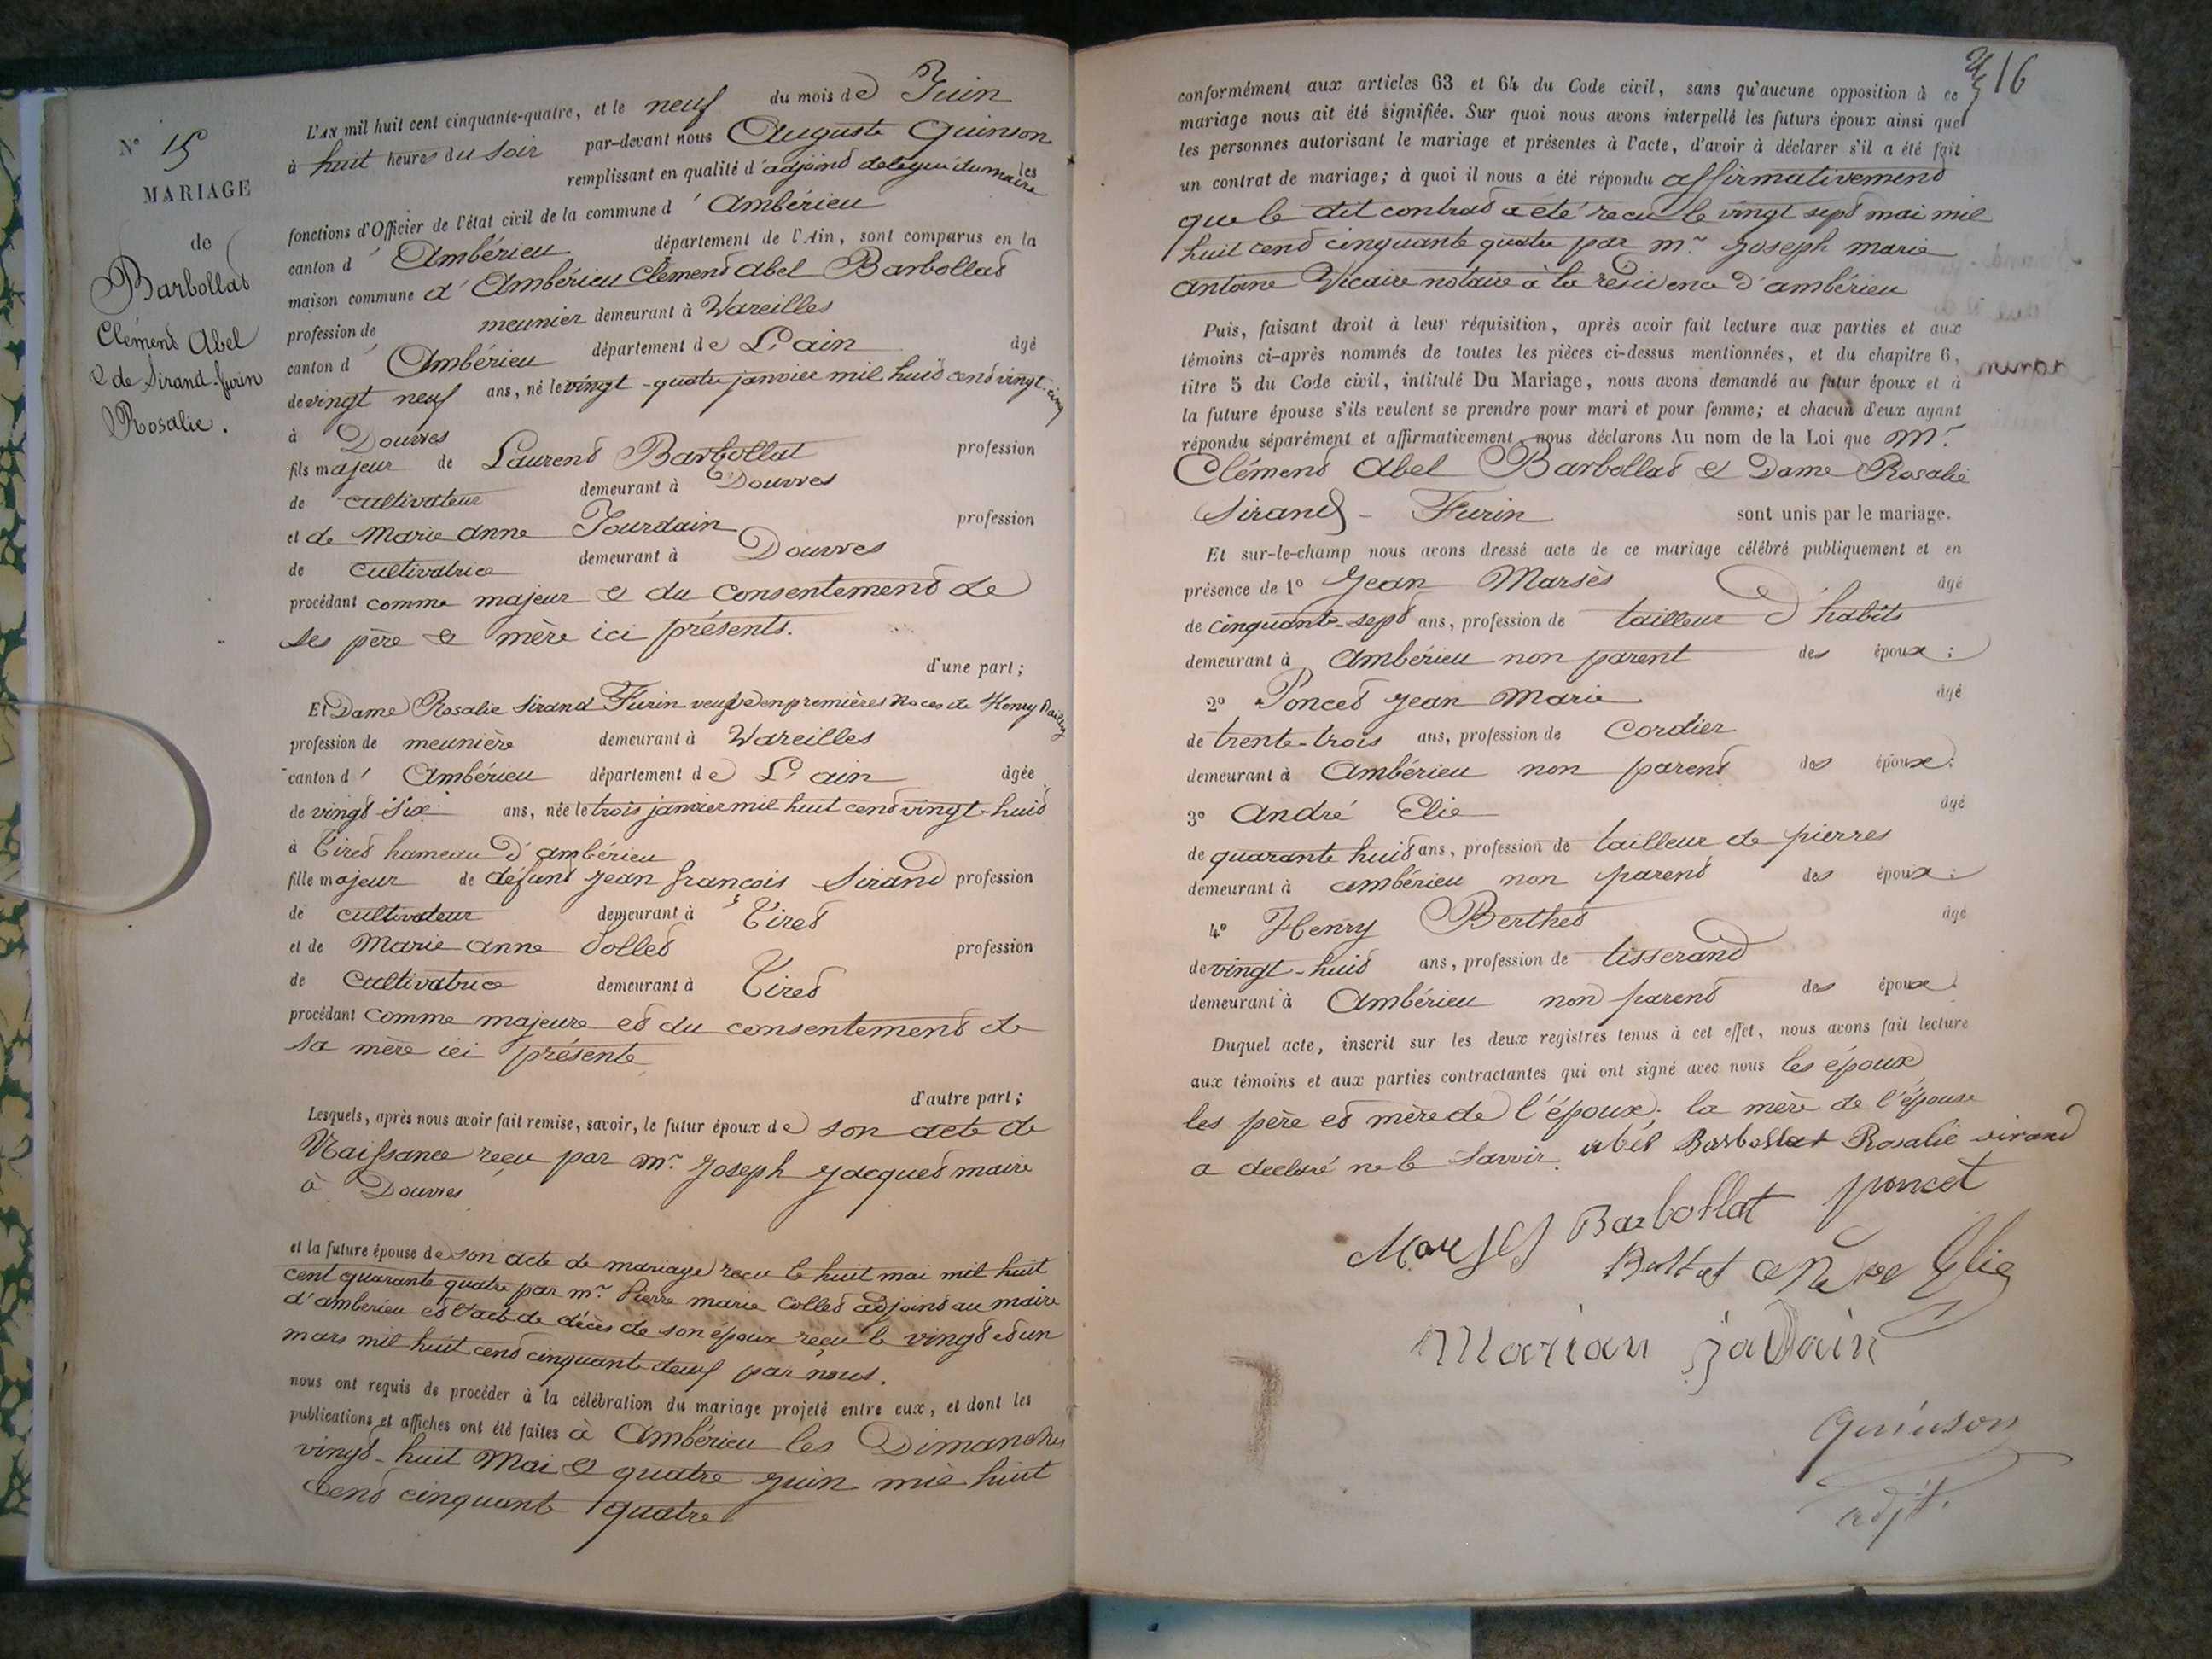 N° 15
MARIAGE
de
Barbollat
Clément Abel
& de Sirand-furin
Rosalie.
L'AN mil huit cent cinquante-quatre, et le neuf du mois de Juin
à huit heures du soir par-devant nous Auguste Quinson
remplissant en qualité d'adjoint délégué du maire les
fonctions d'Officier de l'état civil de la commune d'Ambérieu
canton d'Ambérieu département de l'Ain, sont comparus en la
maison commune d'Ambérieu Clément Abel Barbollat
profession de meunier demeurant à Vareilles
canton d'Ambérieu département de L'ain âgé
de vingt neuf ans, né le vingt-quatre janvier mil huit cent vingt-cinq
à Douvres
fils majeur de Laurent Barbollat profession
de cultivateur demeurant à Douvres
et de Marie anne Jourdain profession
de cultivatrice demeurant à Douvres
procédant comme majeur & du consentement de
ses père & mère ici présents.
d'une part;
Et Dame Rosalie Sirand Furin veuve en premières noces de Henry
profession de meunière demeurant à Vareilles
canton d'Ambérieu département de L'ain âgée
de vingt six ans, née le trois janvier mil huit cent vingt-huit
à Tiret hameau d'ambérieu
fille majeur de défunt Jean françois Sirand profession
de cultivateur demeurant à Tiret
et de Marie anne Sollet profession
de cultivatrice demeurant à Tiret
procédant comme majeure et du consentement de
sa mère ici présente
d'autre part;
Lesquels, après nous avoir fait remise, savoir, le futur époux de son acte de
Naissance reçu par mr. Joseph Jacquet maire
à Douvres
et la future épouse de son acte de mariage reçu le huit mai mil huit
cent quarante quatre par mr. Pierre marie Collet adjoint au maire
d'ambérieu et l'acte de décès de son époux reçu le vingt et un
mars mil huit cent cinquante deux par nous.
nous ont requis de procéder à la célébration du mariage projeté entre eux, et dont les
publications et affiches ont été faites à Ambérieu les Dimanches
vingt-huit Mai & quatre Juin mil huit
Cent cinquante quatre
16
conformément aux articles 63 et 64 du Code civil, sans qu'aucune opposition à ce
mariage nous ait été signifiée. Sur quoi nous avons interpellé les futurs époux ainsi que
les personnes autorisant le mariage et présentes à l'acte, d'avoir à déclarer s'il a été fait
un contrat de mariage; à quoi il nous a été répondu affirmativement
que le dit contrat a été reçu le vingt sept mai mil
huit cent cinquante quatre par mr. Joseph marie
antoine Vicaire notaire à la résidence d'ambérieu
Puis, faisant droit à leur réquisition, après avoir fait lecture aux parties et aux
témoins ci-après nommés de toutes les pièces ci-dessus mentionnées, et du chapitre 6,
titre 5 du Code civil, intitulé Du Mariage, nous avons demandé au futur époux et à
la future épouse s'ils veulent se prendre pour mari et pour femme; et chacun d'eux ayant
répondu séparément et affirmativement, nous déclarons Au nom de la Loi que Mr.
Clément Abel Barbollat & Dame Rosalie
Sirand - Furin sont unis par le mariage.
Et sur-le-champ nous avons dressé acte de ce mariage célébré publiquement et en
présence de 1° Jean Marsès âgé
de cinquante-sept ans, profession de tailleur d'habits
demeurant à Ambérieu non parent des époux;
2° Poncet Jean Marie âgé
de trente-trois ans, profession de Cordier
demeurant à Ambérieu non parent des époux;
3° André Elie âgé
de quarante huit ans, profession de tailleur de pierres
demeurant à ambérieu non parent des époux;
4° Henry Berthet âgé
de vingt-huit ans, profession de tisserand
demeurant à Ambérieu non parent des époux.
Duquel acte, inscrit sur les deux registres tenus à cet effet, nous avons fait lecture
aux témoins et aux parties contractantes qui ont signé avec nous les époux,
les père et mère de l'époux; la mère de l'épouse
a déclaré ne le savoir. abel Barbollat Rosalie sirand
Marses Barbollat poncet
andre Elie
marian jadain
Quinson
adjt.